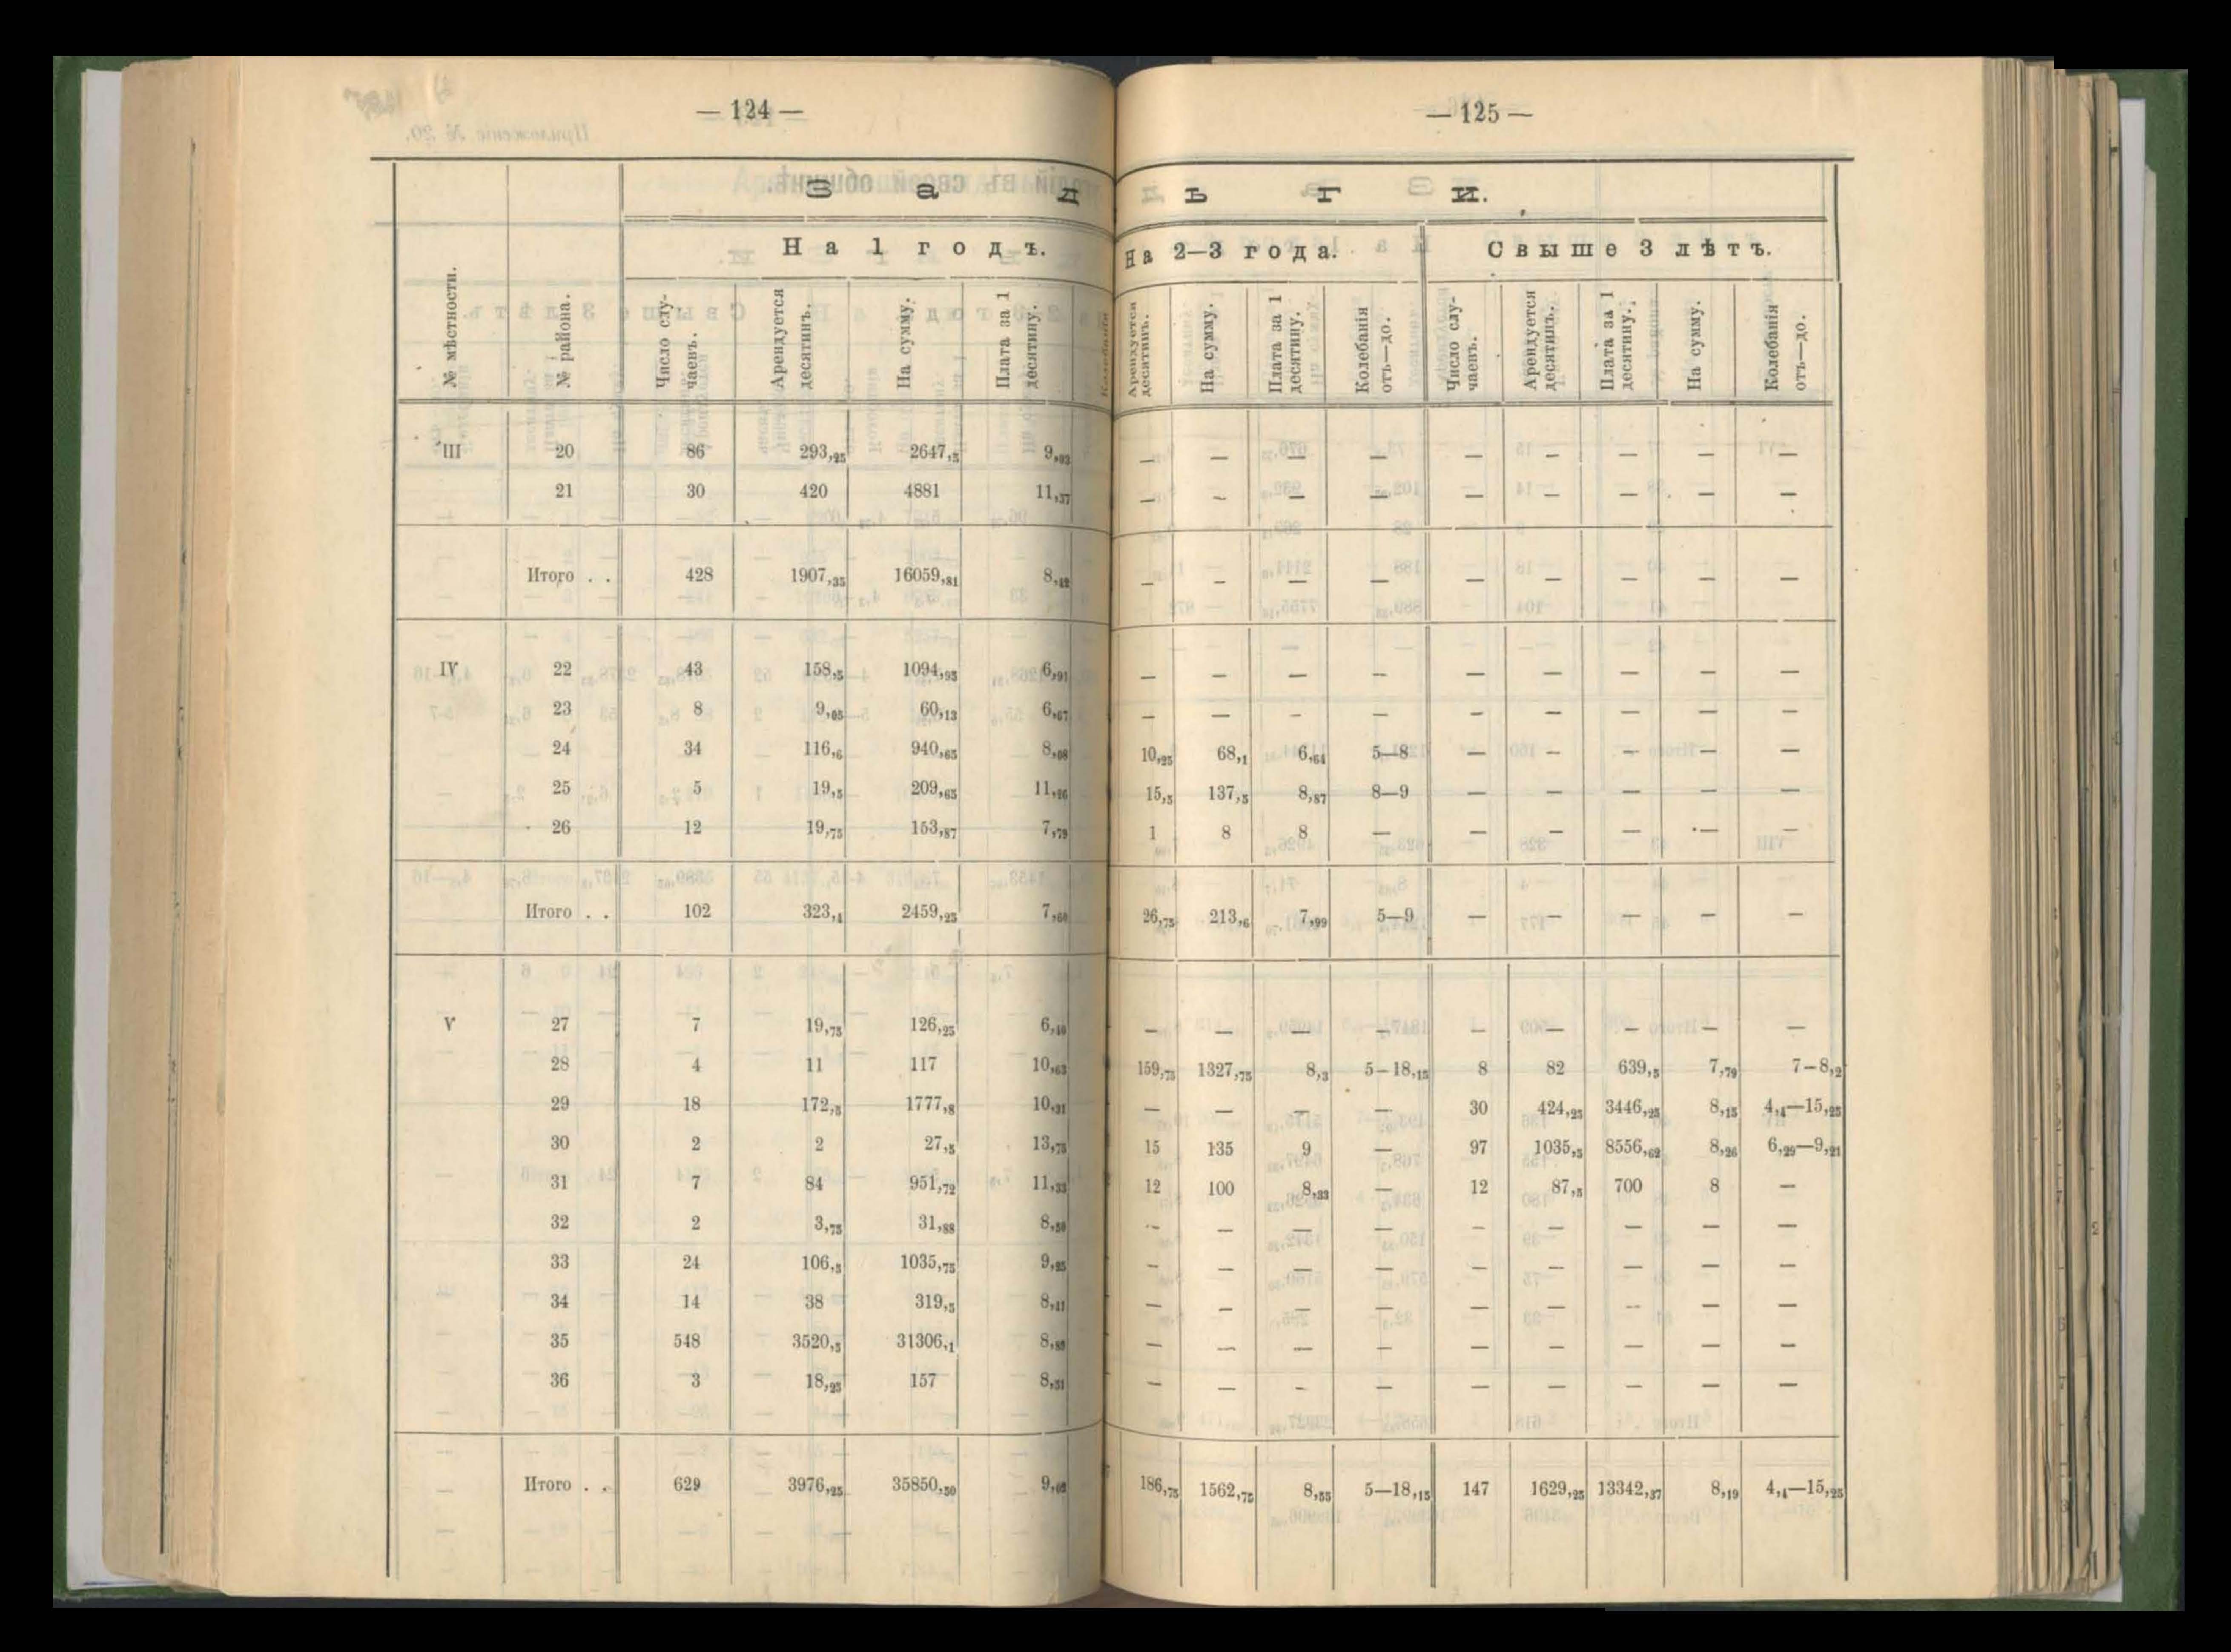 — 124 —
З а д
Н а 1 г о д ъ.
№ мѣстности.
№ района.
Число слу-
чаевъ.
Арендуется
десятинъ.
На сумму.
Плата за 1
десятину.
III 20 86 293,25 2647,5 9,03
21 30 420 4881 11,37
Итого . . 428 1907,35 16059,81 8,42
IV 22 43 158,5 1094,95 6,91
23 8 9,05 60,13 6,67
24 34 116,6 940,65 8,08
25 5 19,5 209,65
26 12 19,75 153,87 7,79
Итого . . 102 323,4 2459,25 7,60
V 27 7 19,75 126,25 6,40
28 4 11 117 10,63
29 18 172,5 1777,8 10,31
30 2 2 27,5 13,75
31 7 84 951,72 11,33
32 2 3,75 31,88 8,50
33 24 106,5 1035,75
34 14 38 319,5 8,41
35 548 3520,5 31306,1 8,89
36 3 18,25 157
Итого . . 629 3976,25 35850,50
— 125 —
ь г и.
На 2—3 года.
Свыше 3 лѣтъ.
Арендуется
десятинъ.
На сумму.
Плата за 1
десятину.
Колебанія
отъ—до.
Число слу-
чаевъ.
Арендуется
десятинъ.
Плата за 1
десятину.
На сумму.
Колебанія
отъ—до.
— — — — — — — — —
— — — — — — — — —
— — — — — — — — —
— — — — — — — — —
— — — — — — — — —
10,25 68,1 6,64 5—8 — — — — —
15,5 137,5 8,87 8—9 — — — — —
1 8 8 — — — — — —
26,75 213,6 7,99 5—9 — — — — —
— — — — — — — — —
159,75 1327,75 8,3 5—18,15 8 82 639,5 7,79 7—8,2
— — — — 30 424,25 3446,25 8,15 4,4—15,25
15 135 9 — 97 1035,5 8556,62 8,26 6,29—9,21
12 100 8,33 — 12 87,5 700 8 —
— — — — — — — — —
— — — — — — — — —
— — — — — — — — —
— — — — — — — — —
— — — — — — — — —
186,75 1562,75 8,55 5—18,15 147 1629,25 13342,37 8,19 4,4—15,25